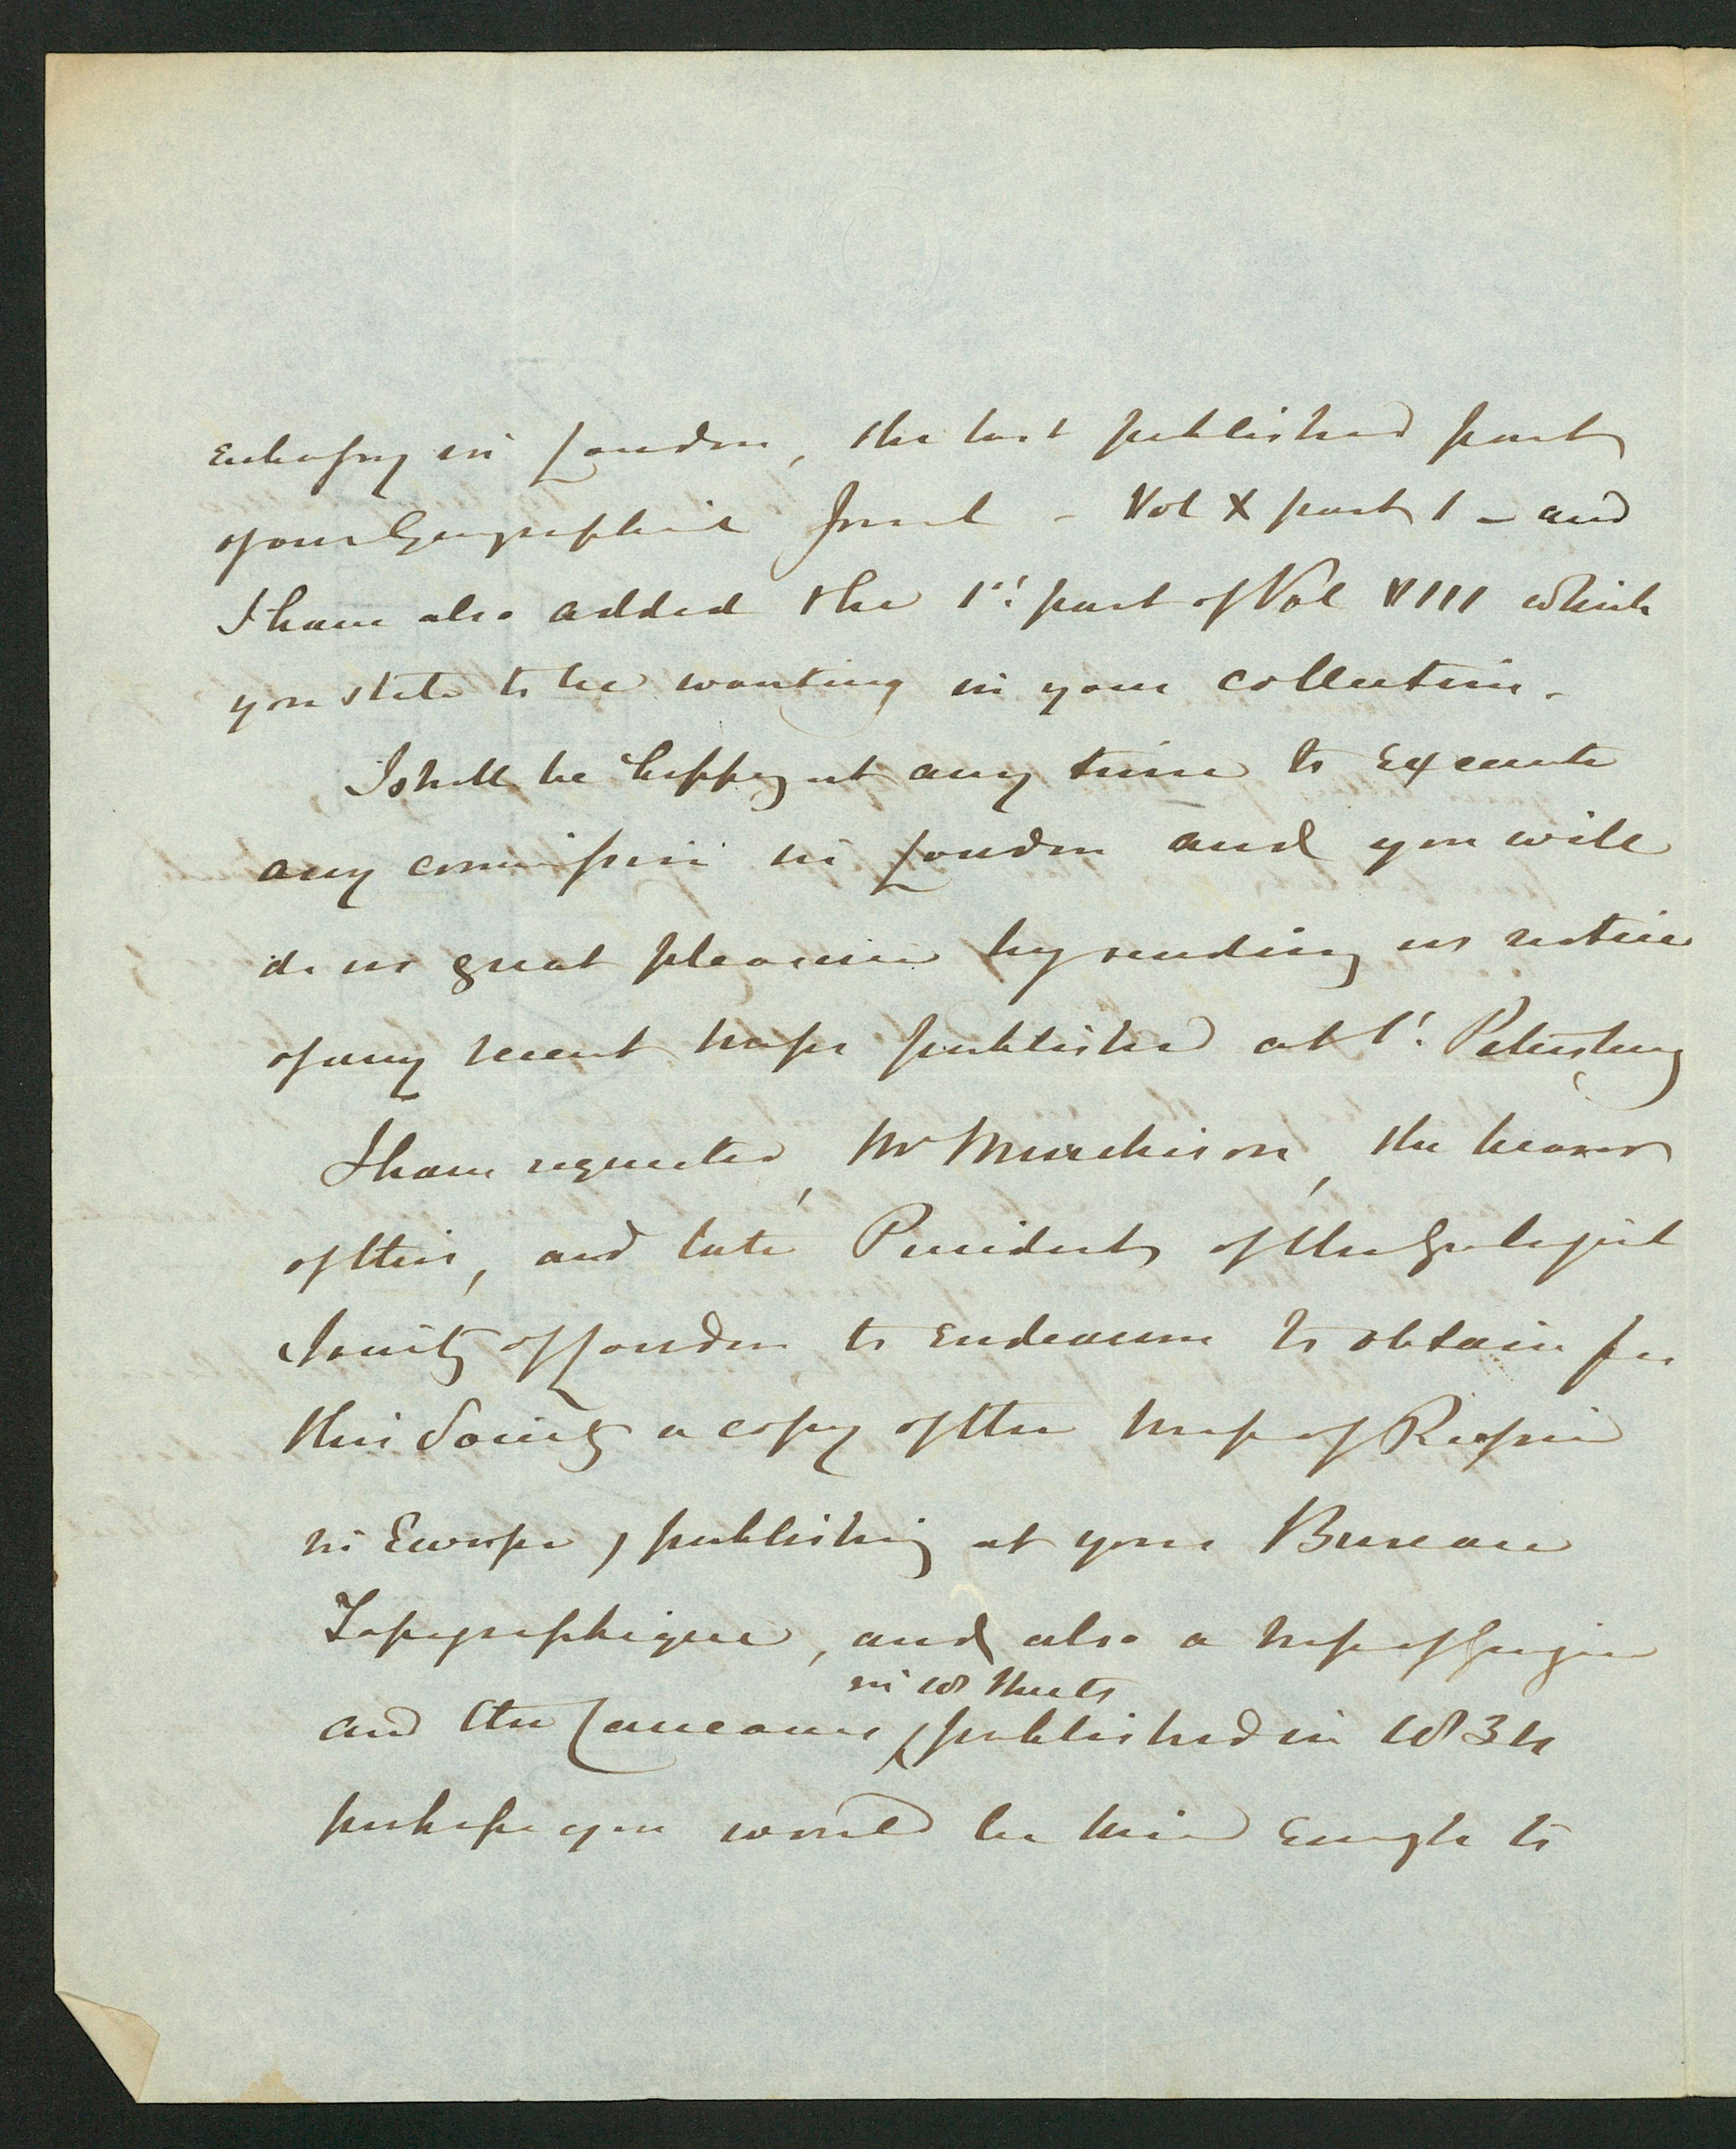 Embassy in London, the last published part
of our Geographical Journal - Vol X part 1 - and
I have also added the 1st part of Vol VIII which
you state to be wanting in your collection.
I shall be happy at any time to execute
any commission in London and you will
do us great pleasure by sending us notice
of any recent maps published at St. Petersburg
I have requested, Mr Murchison, the bearer
of this, and late President of the Geological
Society of London to endeavour to obtain for
this Society a copy of the map of Russia
in Europe, publishing at your Bureau
Topographique, and also a map of Georgia
in 10 sheets
and the Caucasus, published in 1834
perhaps you would be kind enough to